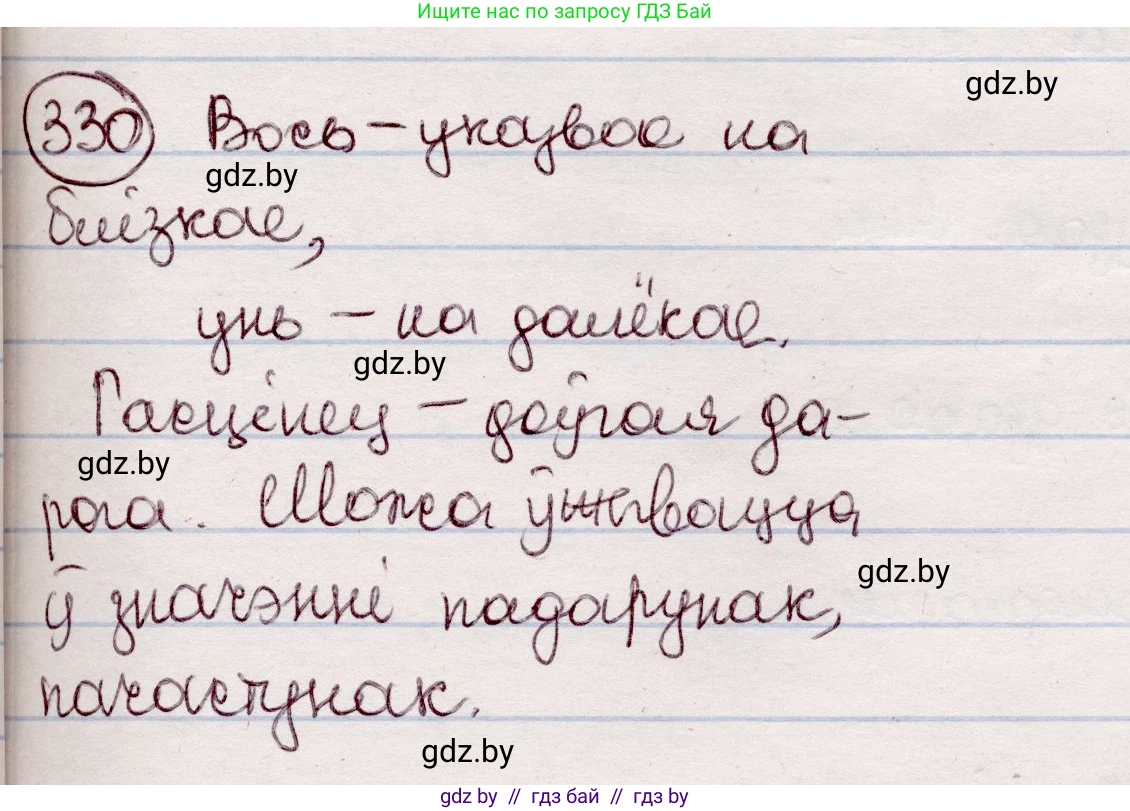 Ищите нас по запросу ГДЗ Бай
gdz.by
330 Вось – указвае на
gdz.by
блізкае,
унь – на далёкае.
gdz.by
Гасцінец – доўгая да-
gdz.by
рога. Можа ўжывацца
gdz.by
ў значэнні падарунак,
пачастунак.
gdz.by
gdz by // гдз бай // gdz by